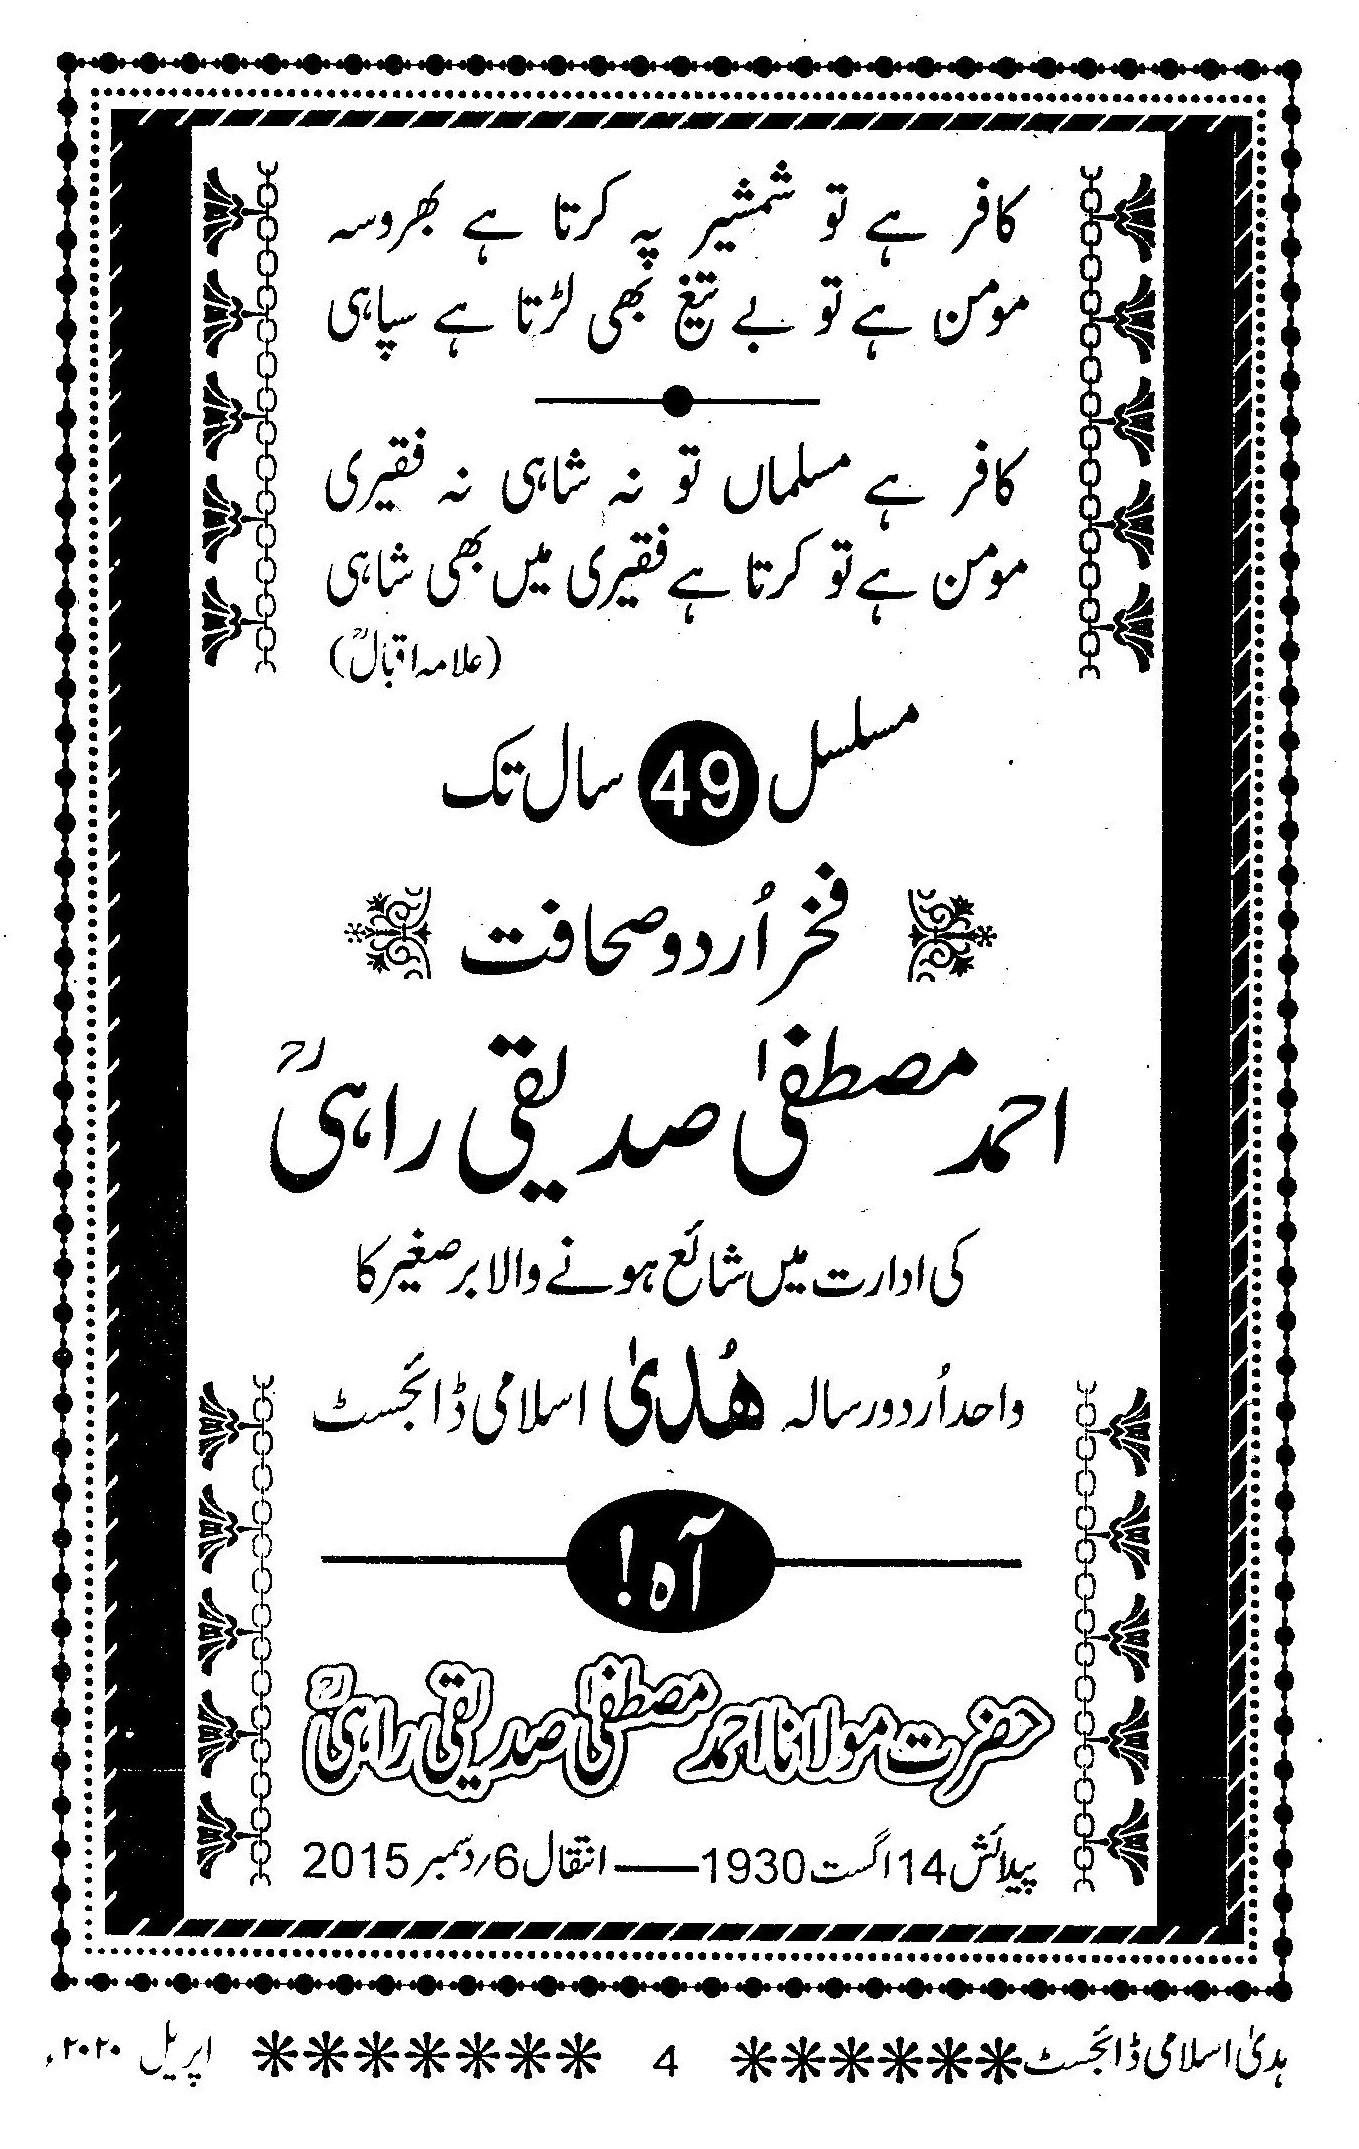 کافر ہے تو شمشیر پہ کرتا ہے بھروسہ
مومن ہے تو بے تیغ بھی لڑتا ہے سپاہی
کافر ہے مسلماں تو نہ شاہی نہ فقیری
مومن ہے تو کرتا ہے فقیری میں بھی شاہی
(علامہ اقبالؒ)
مسلسل 49 سال تک
فخر اُردو صحافت
احمد مصطفیٰ صدیقی راہیؒ
کی ادارت میں شائع ہونے والا برصغیر کا
واحد اُردو رسالہ ھُدیٰ اسلامی ڈائجسٹ
آہ!
حضرت مولانا احمد مصطفیٰ صدیقی راہیؒ
پیدائش 14 اگست 1930 —— انتقال 6؍ دسمبر 2015
ہدیٰ اسلامی ڈائجسٹ 4 اپریل ۲۰۲۰ء